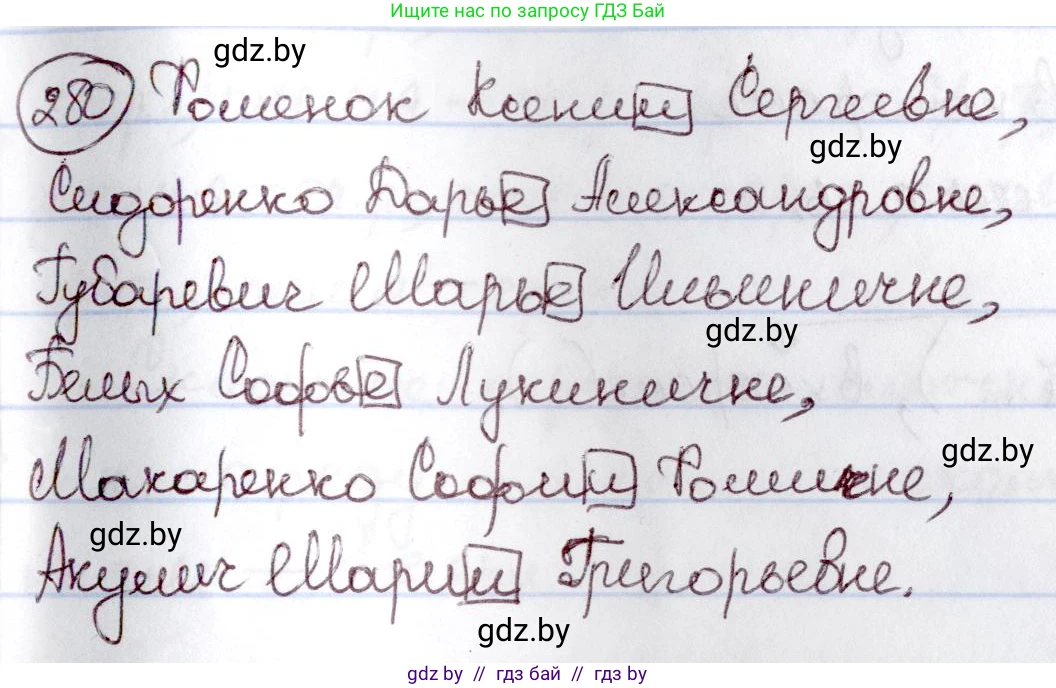 Ищите нас по запросу ГДЗ Бай
gdz.by
280 Роменок Ксении Сергеевне,
gdz.by
Сидоренко Дарье Александровне,
Губаревич Марье Ильиничне,
gdz.by
Белых Софье Лукиничне,
gdz.by
Макаренко Софии Фоминичне,
gdz.by
Акулич Марии Григорьевне.
gdz.by
gdz by // гдз бай // гдз by